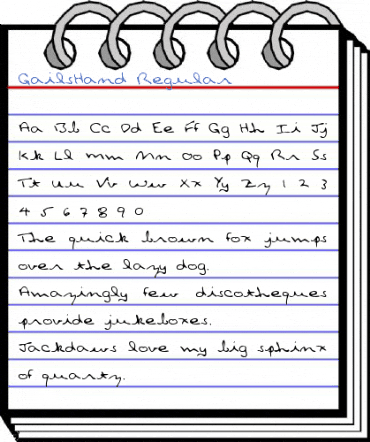 GailsHand Regular
Aa Bb Cc Dd Ee Ff Gg Hh Ii Jj
Kk Ll Mm Nn Oo Pp Qq Rr Ss
Tt Uu Vv Ww Xx Yy Zz 1 2 3
4 5 6 7 8 9 0
The quick brown fox jumps
over the lazy dog.
Amazingly few discotheques
provide jukeboxes.
Jackdaws love my big sphinx
of quartz.